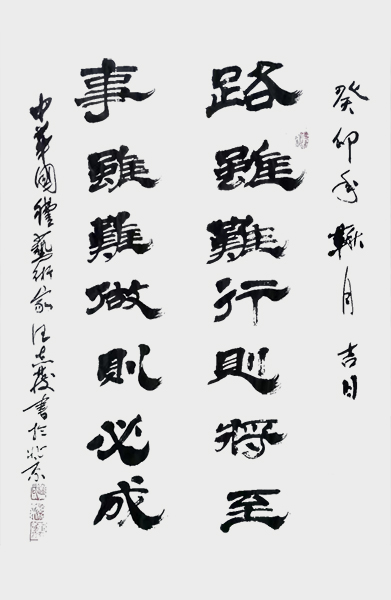 癸卯年月吉日
路雖難行則將至
事雖難做則必成
中華國禮藝術家汪志發書於北京